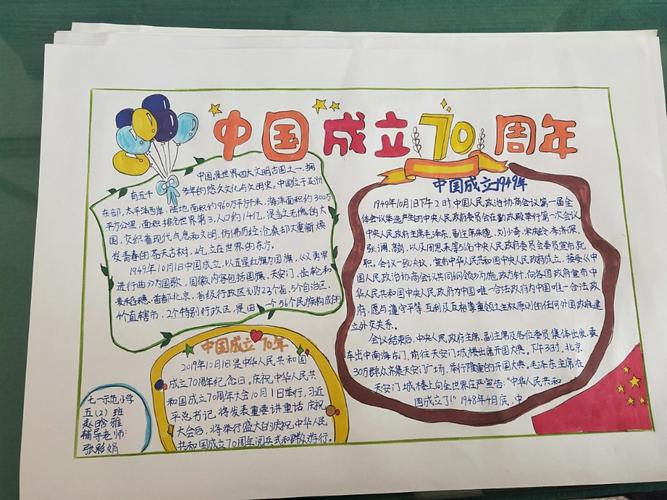 中国成立70周年
中国是世界四大文明古国之一,拥
有五千多年的悠久文化与文明史。中国位于亚洲
东部,太平洋西岸,陆地面积约960万平方千米,海洋面积约300万
平方公里,面积排名世界第3,人口约14亿,是当之无愧的大
国。交织着现代气息和文明,仿佛历经沧桑却又重新焕
发青春的苍天古树,屹立在世界的东方。
1949年10月1日中国成立,以五星红旗为国旗,《义勇军
进行曲》为国歌,国徽内容包括国旗、天安门、齿轮和
麦稻穗,首都北京,省级行政区划为23个省、5个自治区、
4个直辖市、2个特别行政区,是由一个56个民族构成的
中国成立70年
2019年10月1日是中华人民共和国
成立70周年纪念日。庆祝中华人民共
和国成立70周年大会10月1日举行,习近
平总书记,将发表重要讲话 庆祝
大会后,将举行盛大的庆祝中华人民
共和国成立70周年阅兵式和群众游行。
七一示范小学
五(2)班
赵晗雅
辅导老师:
张彩娟
中国成立1949年
1949年10月1日下午2时,中国人民政治协商会议第一届全
体会议推选产生的中央人民政府委员会在勤政殿举行第一次会议
中央人民政府主席毛泽东、副主席朱德、刘少奇、宋庆龄、李济深、
张澜、高岗,以及周恩来等56名中央人民政府委员会委员宣布就
职。会议一致决议,宣布中华人民共和国中央人民政府成立,接受《中
国人民政治协商会议共同纲领》为施政方针,向各国政府宣布中
华人民共和国中央人民政府为中国唯一合法政府为中国唯一合法政
府,愿与遵守平等、互利及互相尊重领土主权原则的任何外国政府建
立外交关系。
会议结束后,中央人民政府主席、副主席及各位委员集体出发,乘
车出中南海东门,前往天安门城楼出席开国大典。下午3时,北京
30万群众齐集天安门广场,举行隆重的开国大典。毛泽东主席在
天安门城楼上向全世界庄严宣告:“中华人民共和
国成立了!”1948年4月底,中